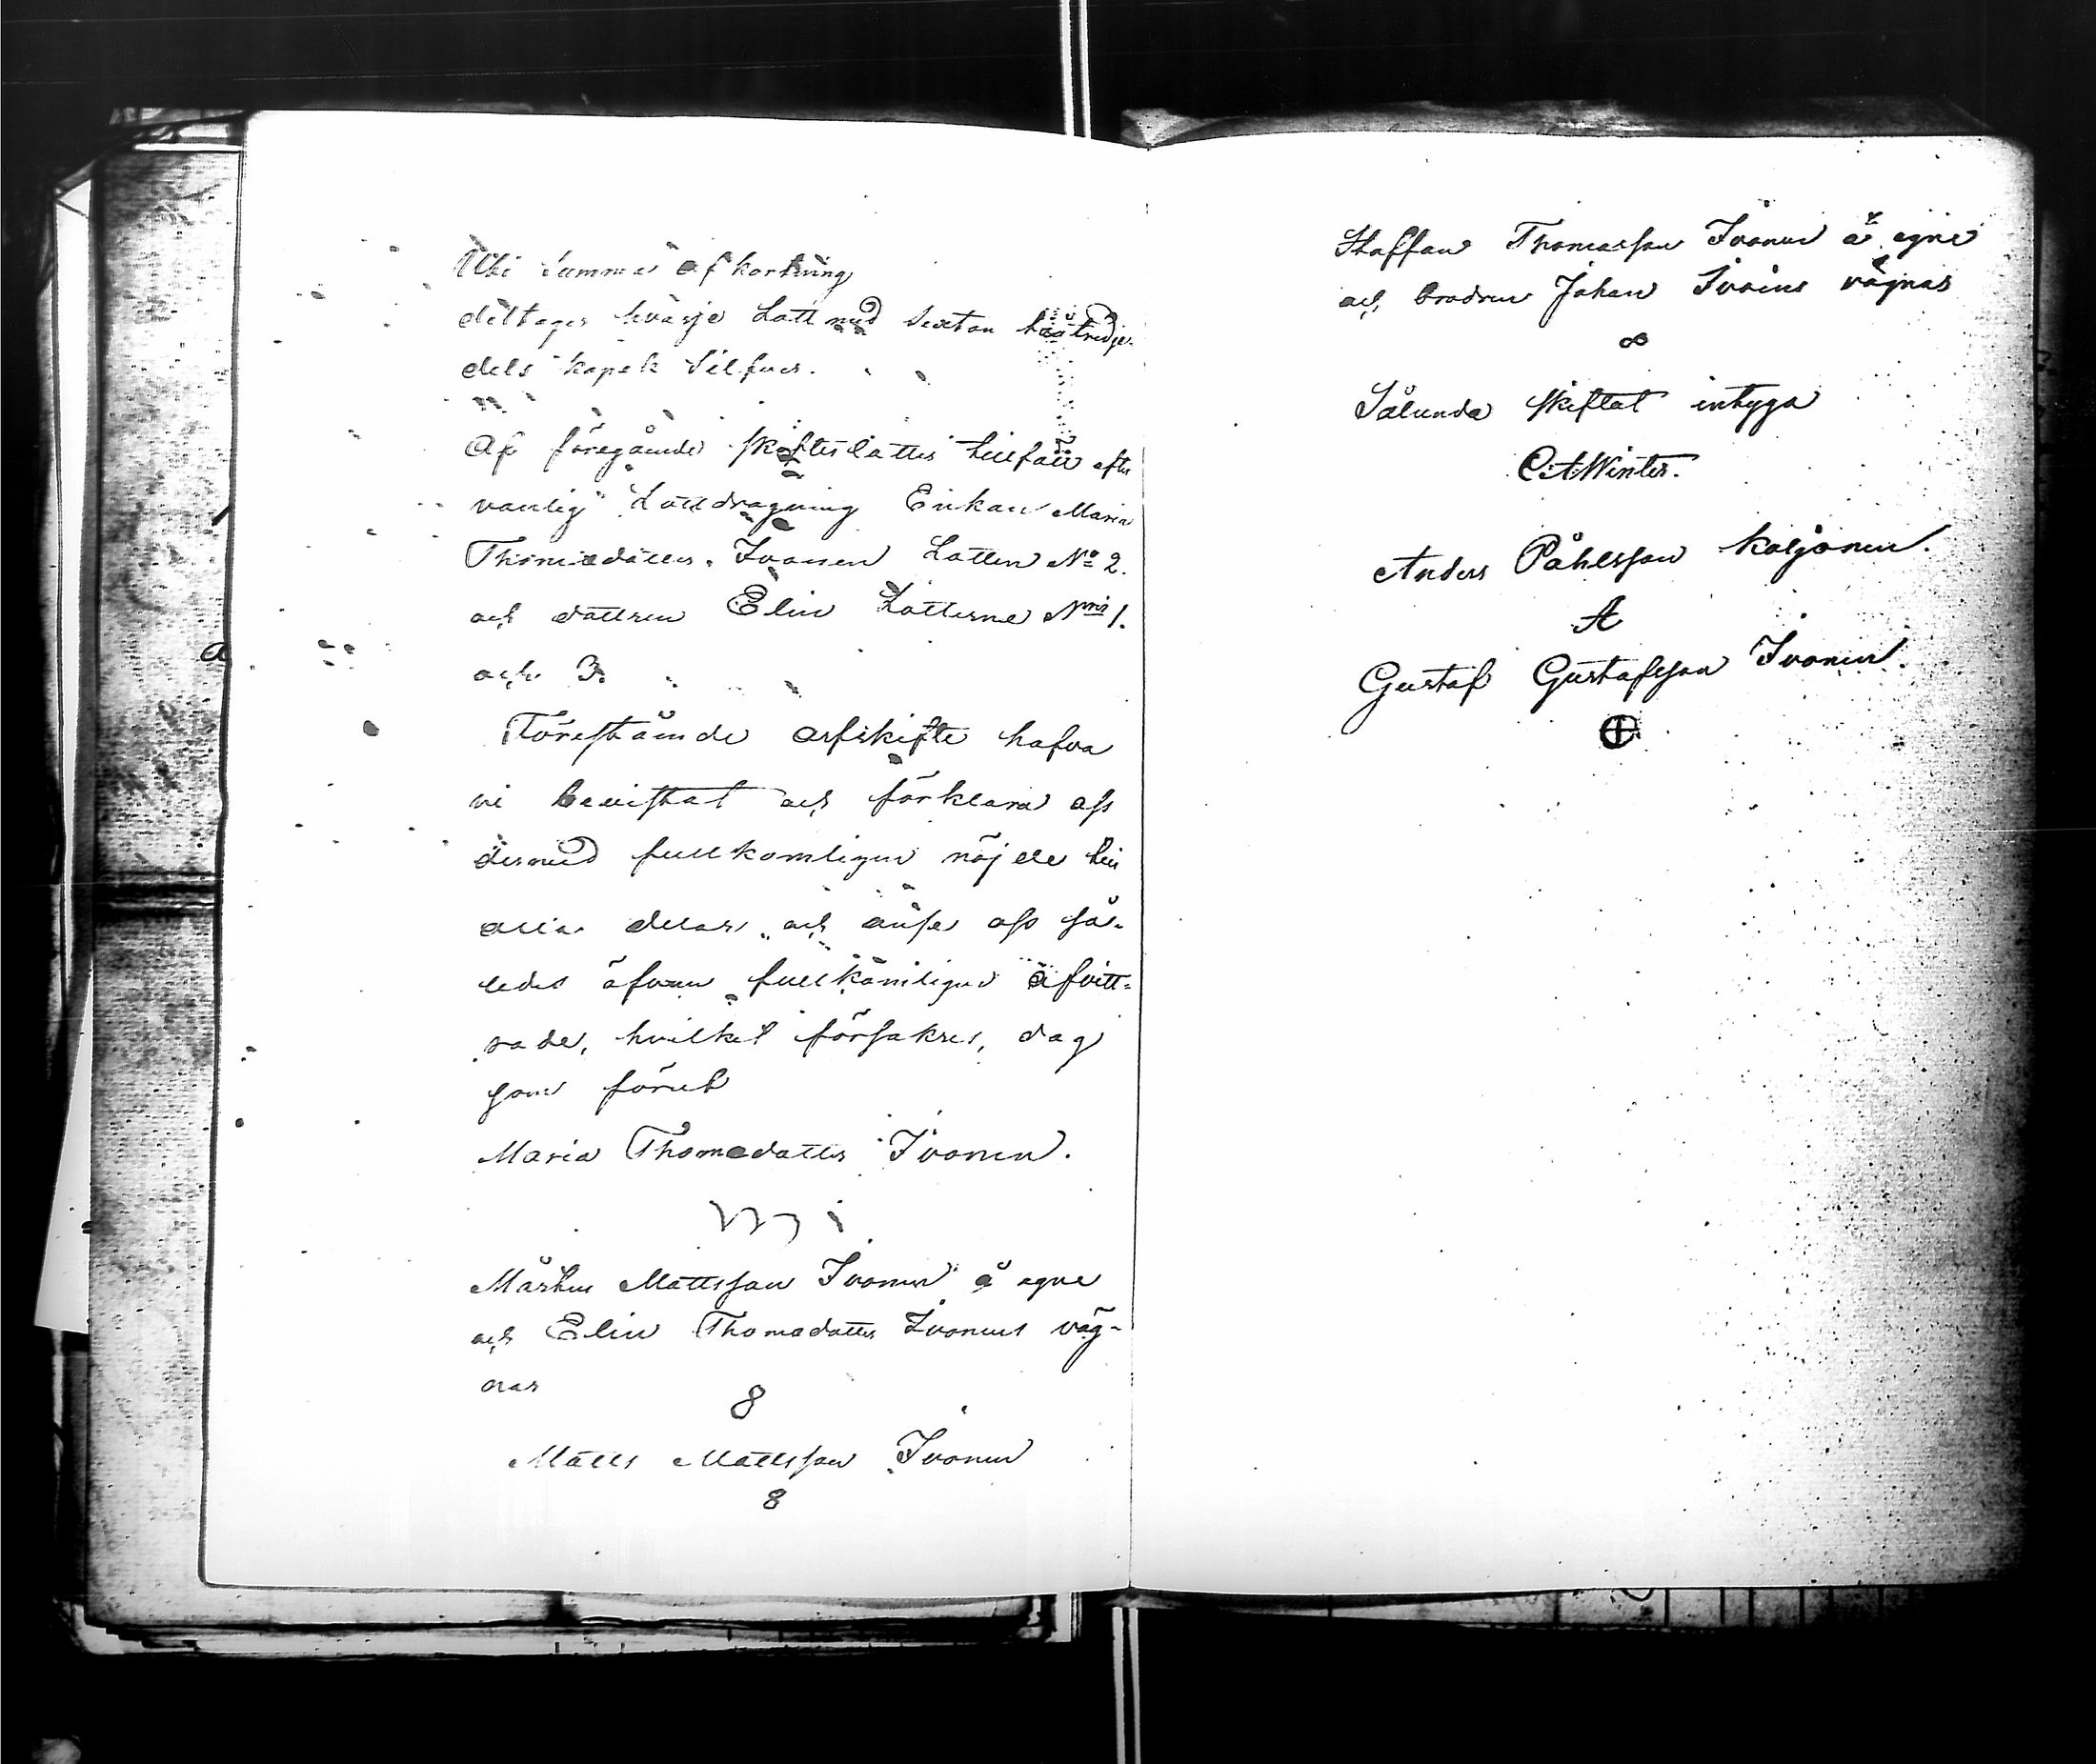 Uti Summa afkortning
deltager hvarje Lott med Sexton två tredje-
dels kopek Silfver.
Af föregående skifteslotter tillföll efter
vanlig Lottdragning Enkan Maria
Thomædotter Ivonen Lotten No 2.
och dottren Elin Lotterne Nris 1.
och 3.
Förestående arfskifte hafva
vi bevistat och förklara oss
dermed fullkomligen nöjde till
alla delar, och anse oss så-
ledes äfven fullkomligen afvitt-
rade, hvilket försäkres, dag
som förut
Maria Thomædotter Ivonen.
Markus Mattsson Ivonen å egne
och Elin Thomædotter Ivonens väg-
nar
8
Matts Mattsson Ivonen
8
Staffan Thomasson Ivonen å egne
och brodren Johan Ivoins vägnar
∞
Sålunda skiftat intyga
C:A:Winter.
Anders Påhlsson Koljonen.
A
Gustaf Gustafsson Ivonen.
⊕